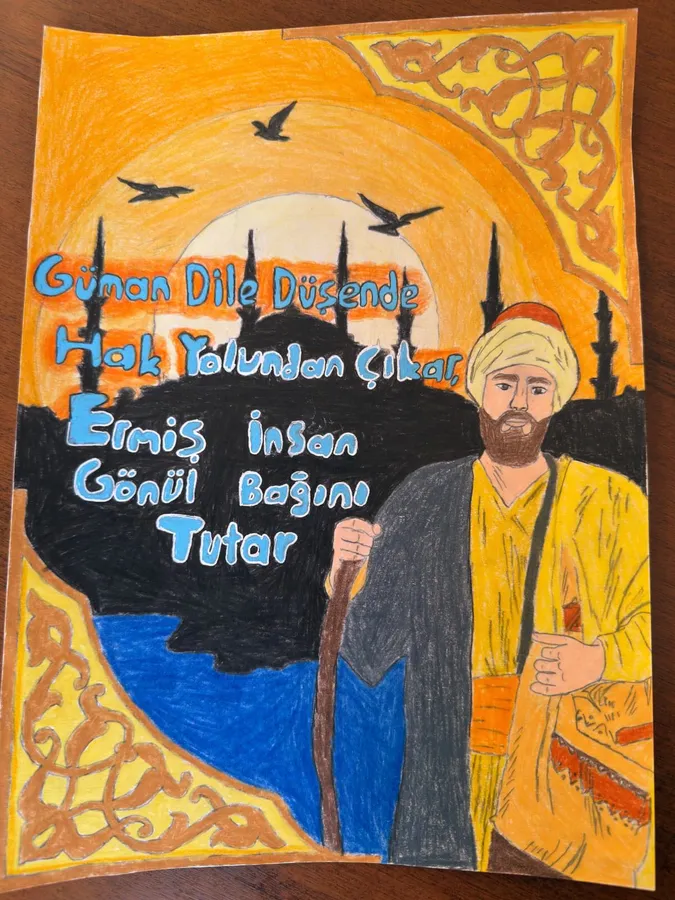 Güman Dile Düşende
Hak Yolundan Çıkar,
Ermiş İnsan
Gönül Bağını
Tutar